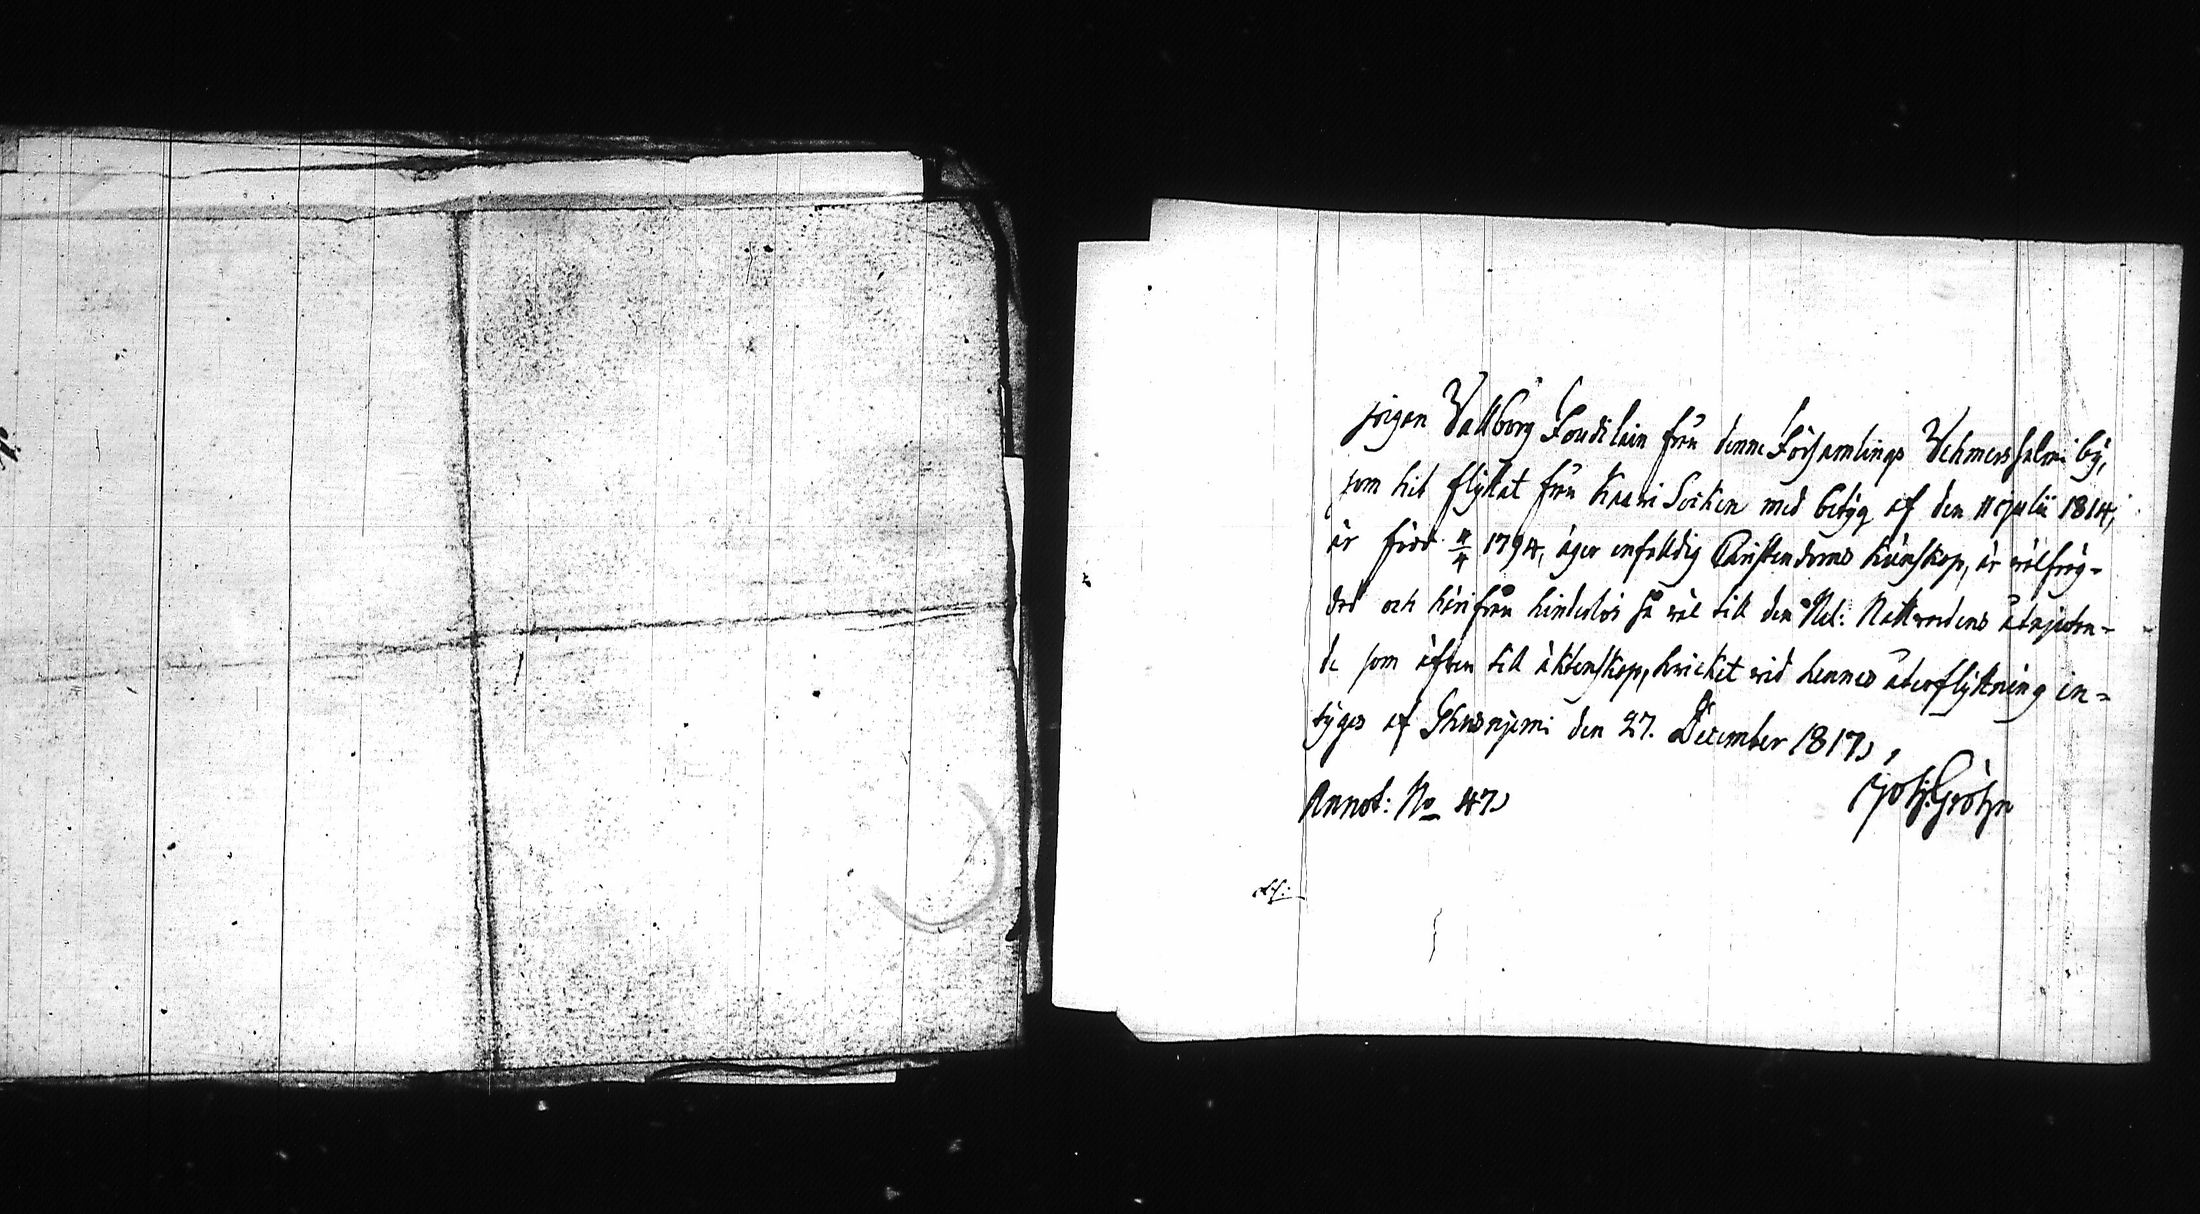 pigan Vallborg Loudilain från denne Församlings Vehmersalmi by,
som hit flyttat från Kaavi Socken med betyg af den 11 Julii 1814,
är född 4/4 1794, äger enfalldig Christendoms Kunskap, är välfräg-
dad och härifrån hinderlös så väl till den Hel: Nattvardens åtnjutan-
de som äfven till äktenskap, hvilket vid hennes återflyttning in-
tygas af Idensalmi den 27. December 1817,
Joh: Gröhn
Annot: No 47,